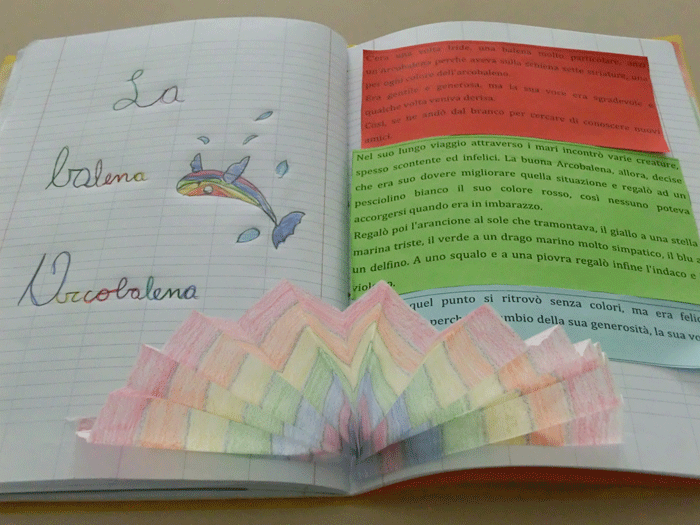 La
balena
Arcobalena
C'era una volta Iride, una balena molto particolare, anzi
un'Arcobalena perché aveva sulla schiena sette striature, una
per ogni colore dell'arcobaleno.
Era gentile e generosa, ma la sua voce era sgradevole e
qualche volta veniva derisa.
Così, se ne andò dal branco per cercare di conoscere nuovi
amici.
Nel suo lungo viaggio attraverso i mari incontrò varie creature,
spesso scontente ed infelici. La buona Arcobalena, allora, decise
che era suo dovere migliorare quella situazione e regalò ad un
pesciolino bianco il suo colore rosso, così nessuno poteva
accorgersi quando era in imbarazzo.
Regalò poi l'arancione al sole che tramontava, il giallo a una stella
marina triste, il verde a un drago marino molto simpatico, il blu a
un delfino. A uno squalo e a una piovra regalò infine l'indaco e
viola.
quel punto si ritrovò senza colori, ma era felice
perch mbio della sua generosità, la sua vo